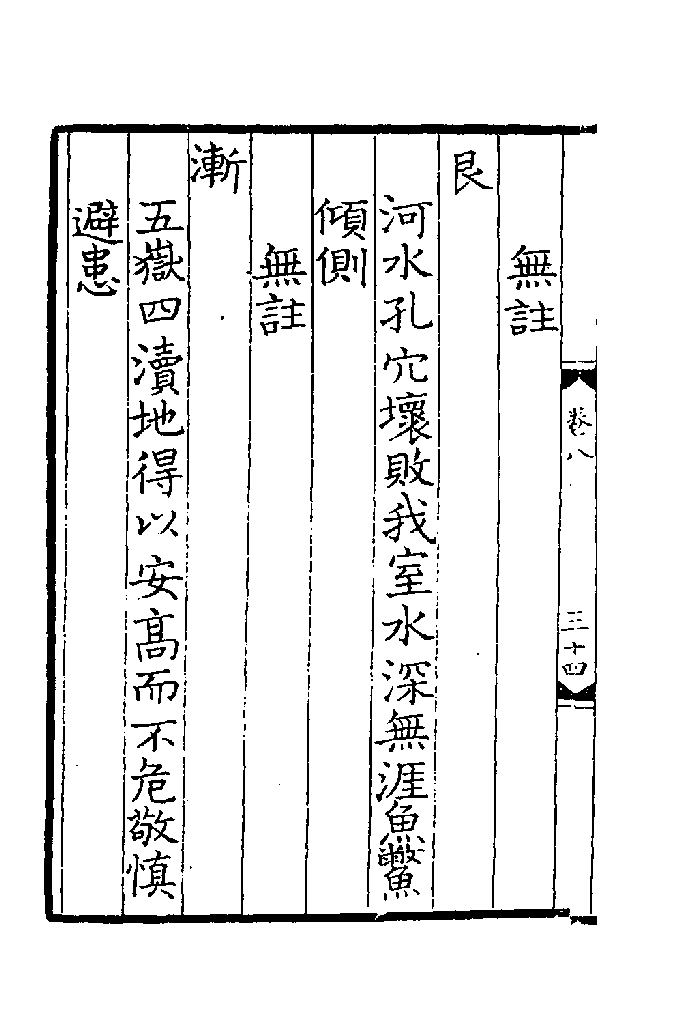 無註
艮
河水孔穴壞敗我室水深無涯魚鱉
傾側
無註
漸
五嶽四瀆地得以安高而不危敬慎
避患
卷八
三十四